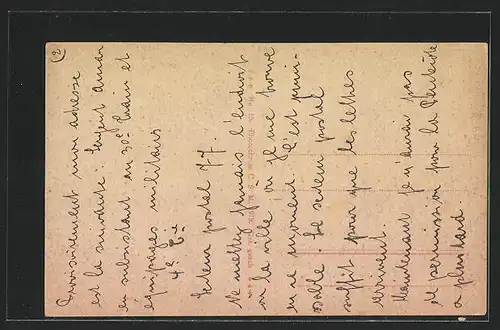 (2
Provisoirement mon adresse
est la suivante. Sergent
en subsistant au 30e train et
équipages militaires
4e Cie
Secteur postal 77.
Ne mettez jamais l'endroit
ni la ville où je me trouve
en ce moment. C'est
Le secteur postal
suffit pour que les lettres
arrivent.
Maintenant je n'aurai pas
de permission pour la Pentecôte
a plus tard.